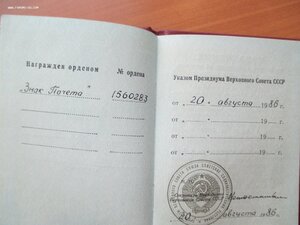 Награжден орденом
№ ордена
„Знак Почета"
1560283
Указом Президиума Верховного Совета СССР
от „20" августа 1986 г.
от „ " 19 г.
от „ " 19 г.
от „ " 19 г.
Секретарь Президиума
Верховного Совета СССР
„20" августа 1986 г.